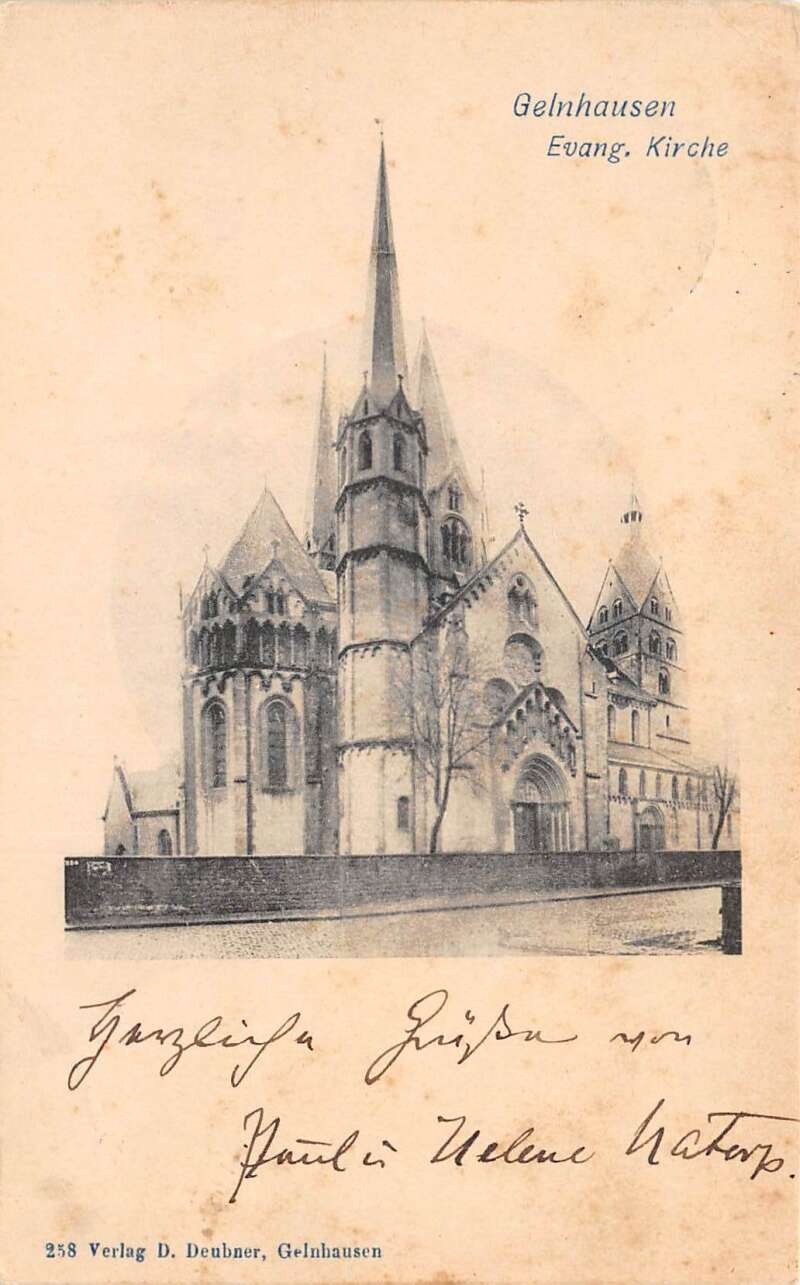 Gelnhausen
Evang. Kirche
Herzliche Grüße von
Paul u Helene Natorp.
258 Verlag D. Deubner, Gelnhausen